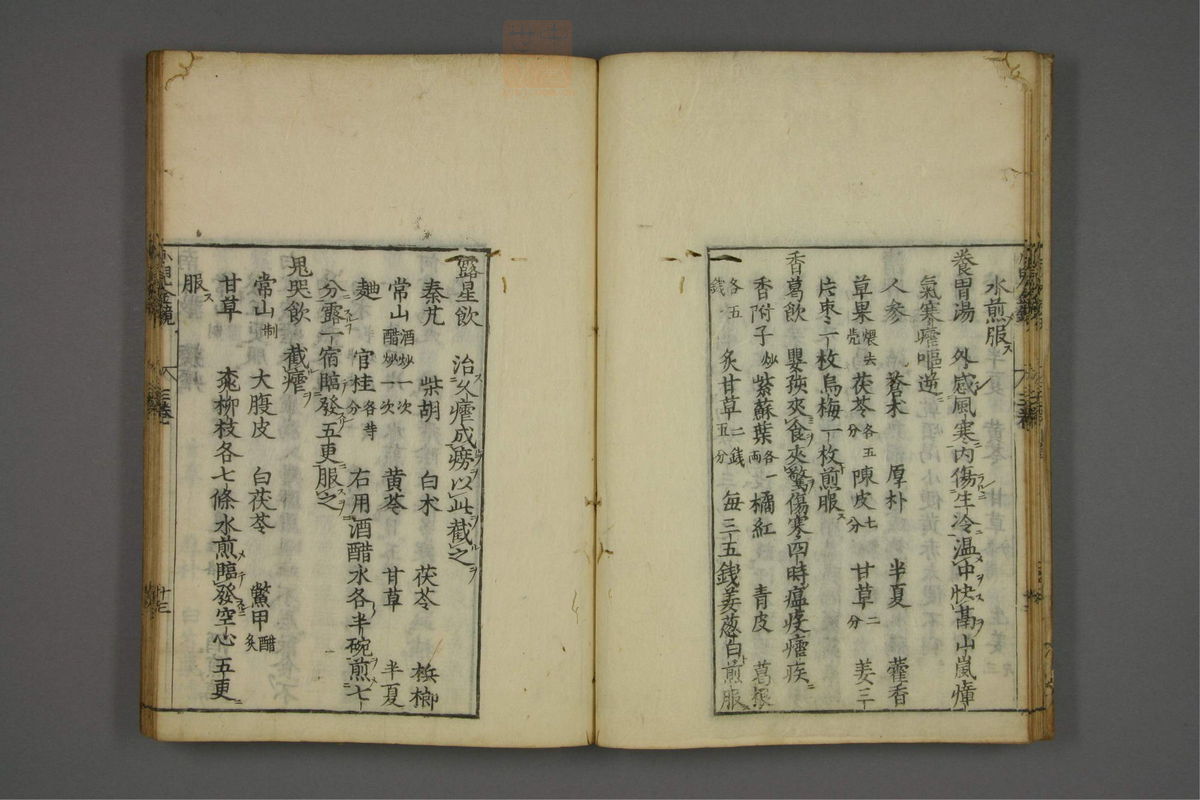 水煎服ス
養胃湯 外感風寒内傷生冷温中快
氣寒瘧嘔逆
人参 蒼朮 厚朴 半夏 藿香
草果煨去壳 茯苓各五分 陳皮七分 甘草二分 姜三
片枣一枚烏梅一枚煎服ス
香葛飲 嬰孩夾食夾驚傷寒四時瘟疫瘧疾
香附子炒 紫蘇葉各一両 橘紅 青皮 葛根
各五錢 炙甘草二錢五分 每三五錢姜葱白煎服
露星飲 治久瘧成癆以此截之
秦艽 柴胡 白朮 茯苓 梹榔
常山酒炒一次醋炒一次 黄芩 甘草 半夏
官桂各等分 右用酒醋水各半碗煎七
分露一宿臨發五更服之
鬼哭飲 截瘧
常山制 大腹皮 白茯苓 鱉甲醋炙
甘草 桃柳枝各七條水煎臨發空心五更
服ス